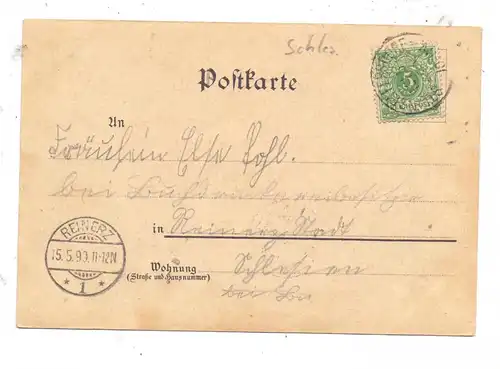 Schles.
Postkarte
5
An
Fräulein Else Pohl.
bei
in Reinerz Stadt
REINERZ
15.5.99.11-12N
* 1 *
Wohnung
(Straße und Hausnummer)
Schlesien
bei